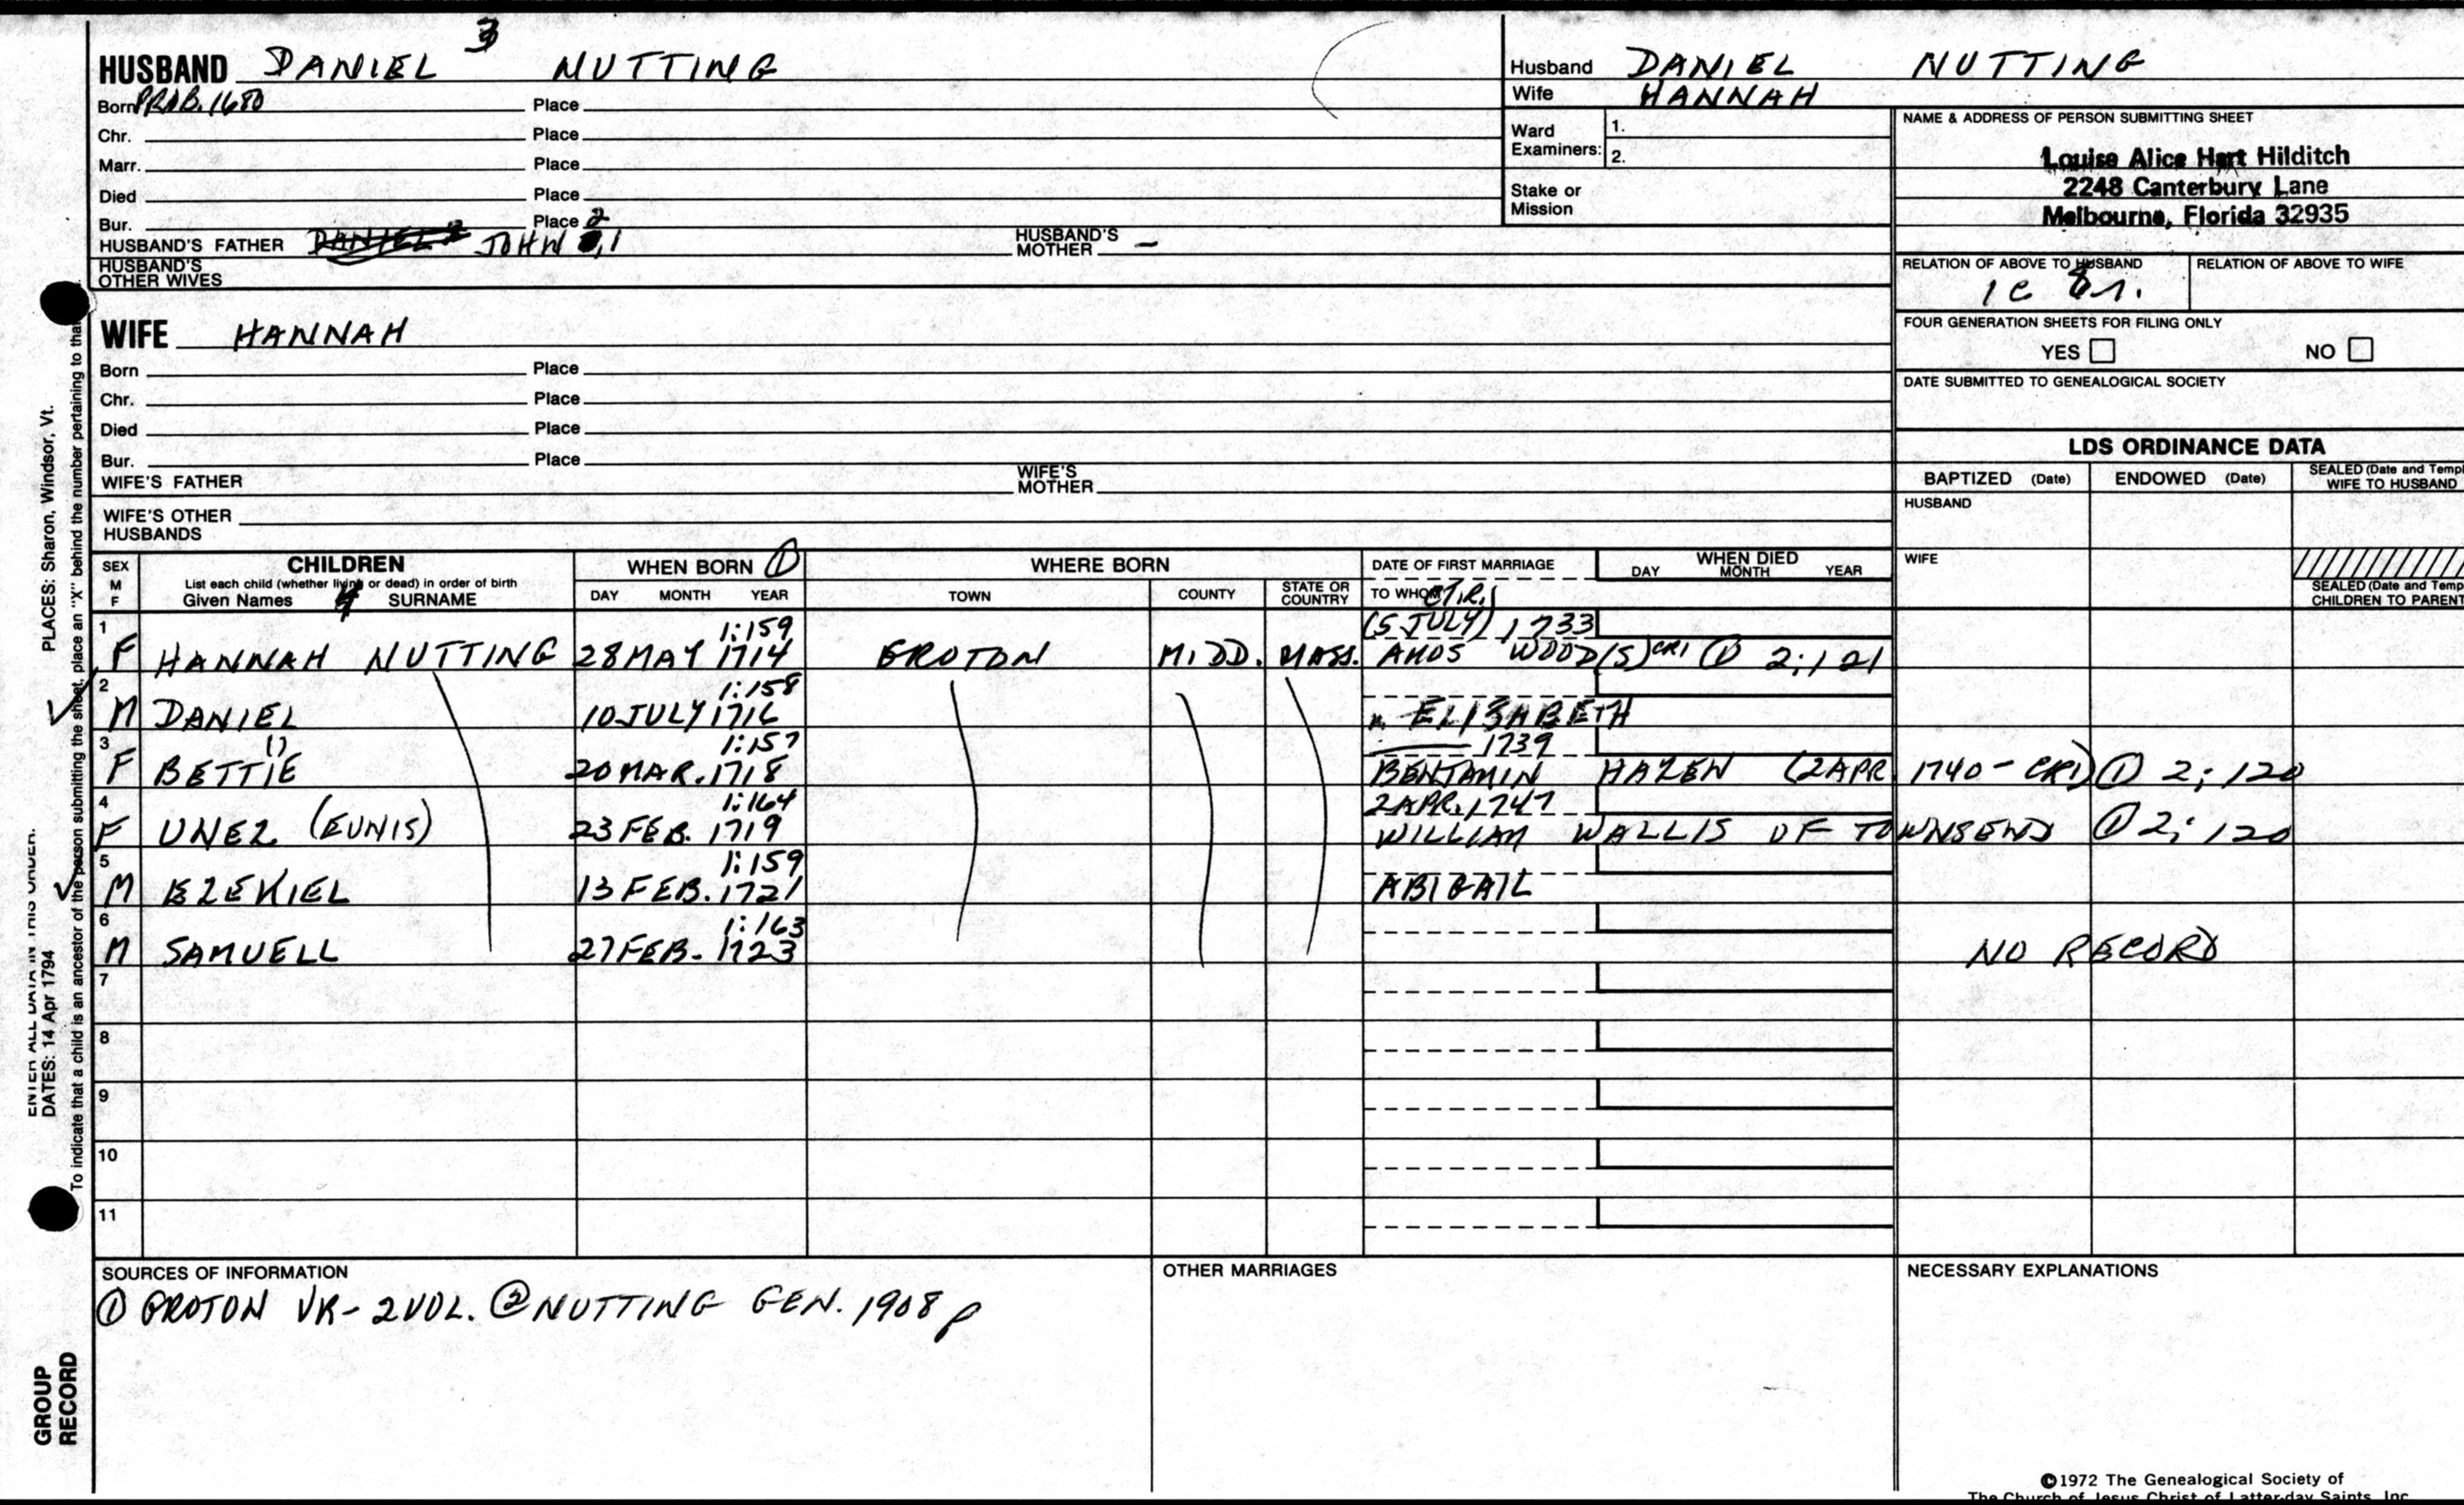 3
HUSBAND DANIEL NUTTING
Born PROB. 1680 Place
Chr. Place
Marr. Place
Died Place
Bur. Place 2
HUSBAND'S FATHER JOHN ,1 HUSBAND'S MOTHER –
HUSBAND'S OTHER WIVES
WIFE HANNAH
Born Place
Chr. Place
Died Place
Bur. Place
WIFE'S FATHER WIFE'S MOTHER
WIFE'S OTHER HUSBANDS
Husband DANIEL NUTTING
Wife HANNAH
Ward Examiners: 1.
2.
Stake or Mission
NAME & ADDRESS OF PERSON SUBMITTING SHEET
Louise Alice Hart Hilditch
2248 Canterbury Lane
Melbourne, Florida 32935
RELATION OF ABOVE TO HUSBAND RELATION OF ABOVE TO WIFE
1C
FOUR GENERATION SHEETS FOR FILING ONLY
YES NO
DATE SUBMITTED TO GENEALOGICAL SOCIETY
LDS ORDINANCE DATA
BAPTIZED (Date) ENDOWED (Date) SEALED (Date and Templ WIFE TO HUSBAND
HUSBAND
WIFE
SEALED (Date and Templ CHILDREN TO PARENT
SEX M F CHILDREN WHEN BORN ① WHERE BORN DATE OF FIRST MARRIAGE WHEN DIED
List each child (whether living or dead) in order of birth
Given Names 4 SURNAME DAY MONTH YEAR TOWN COUNTY STATE OR COUNTRY TO WHOM DAY MONTH YEAR
C.T.R.
1 1:159 (5 JULY) 1733
F HANNAH NUTTING 28 MAY 1714 GROTON MIDD. MASS. AMOS WOOD(S) CR1 ① 2:121
2 1:158
M DANIEL 10 JULY 1716 ELIZABETH
3 1:157 1739
F BETTIE 20 MAR. 1718 BENJAMIN HAZEN (2 APR. 1740 - CR1) ① 2:120
4 1:164 2 APR. 1747
F UNEZ (EUNIS) 23 FEB. 1719 WILLIAM WALLIS OF TOWNSEND ① 2:120
5 1:159
M EZEKIEL 13 FEB. 1721 ABIGAIL
6 1:163
M SAMUELL 27 FEB. 1723 NO RECORD
7
8
9
10
11
SOURCES OF INFORMATION
① GROTON VR - 2 VOL. ② NUTTING GEN. 1908 p
OTHER MARRIAGES
NECESSARY EXPLANATIONS
©1972 The Genealogical Society of
The Church of Jesus Christ of Latter-day Saints, Inc.
ENTER ALL DATA IN THIS ORDER:
DATES: 14 Apr 1794 PLACES: Sharon, Windsor, Vt.
To indicate that a child is an ancestor of the person submitting the sheet, place an "X" behind the number pertaining to that
GROUP
RECORD